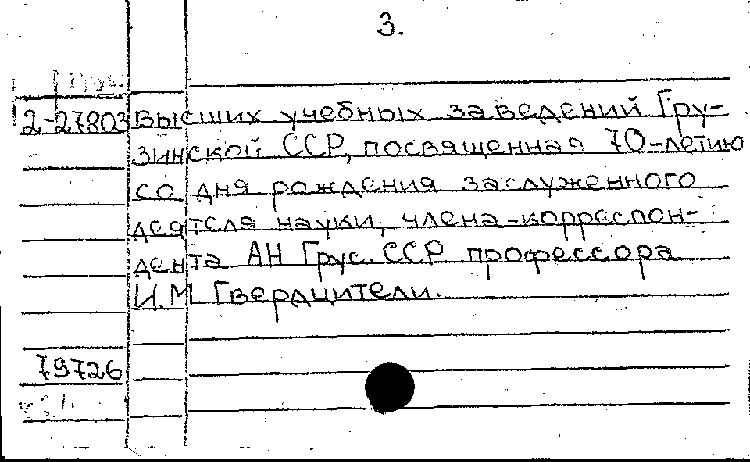 3.
2-27803 высших учебных заведений Гру-
зинской ССР, посвященная 70-летию
со дня рождения заслуженного
деятеля науки, члена-корреспон-
дента АН Груз. ССР профессора
И.М Гвердцители.
79726